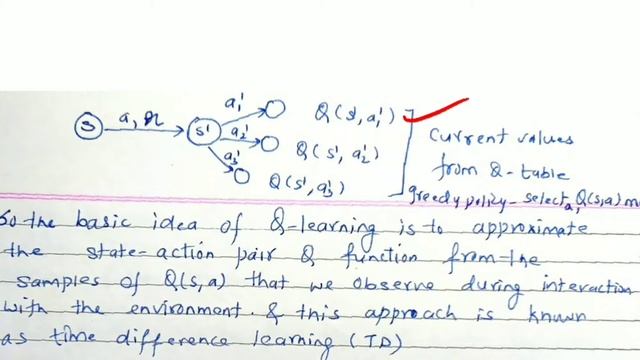 a₁'
Q(s', a₁')
s a, r s' a₂' Q(s', a₂')
a₃' Q(s', a₃')
Current values
from Q-table
greedy policy - select Q(s,a)
So the basic idea of Q-learning is to approximate
the state-action pair Q function from the
samples of Q(s,a) that we observe during interaction
with the environment. & this approach is known
as time difference learning (TD)